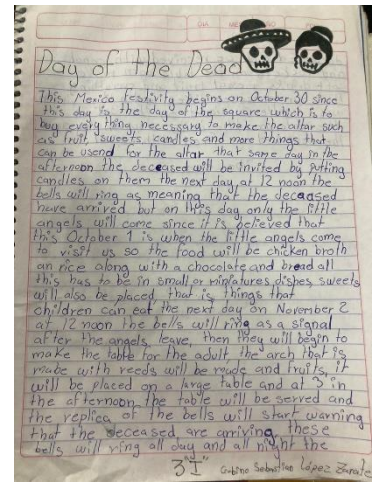 Day of the Dead
This Mexico festivity begins on October 30 since
this day is the day of the square which is to
buy everything necessary to make the altar such
as fruit sweets candles and more things that
can be usend for the altar that same day in the
afternoon the deceased will be invited by putting
candles on them the next day at 12 noon the
bells will ring as meaning that the deceased
have arrived but on this day only the little
angels will come since it is believed that
this October 1 is when the little angels come
to visit us so the food will be chicken broth
an rice along with a chocolate and bread all
this has to be in small or miniatures dishes, sweets
will also be placed, that is, things that
children can eat the next day on November 2
at 12 noon the bells will ring as a signal
after the angels, leave, then they will begin to
make the table for the adult, the arch that is
made with reeds will be made and fruits, it
will be placed on a large table and at 3 in
the afternoon the table will be served and
the replica of the bells will start warning
that the deceased are arriving, these
bells will ring all day and all night the
3°"I" Gabino Sebastian López Zarate